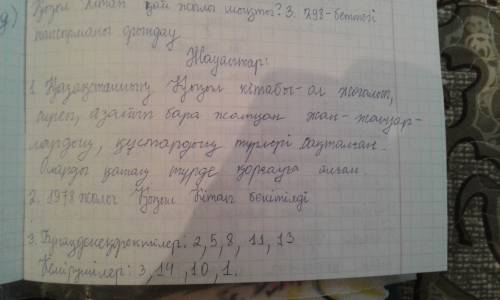 Қызыл кітап қай жылы шықты? 3. 298-беттегі
тапсырманы орындау
Жауаптар:
1 Қазақстанның Қызыл кітабы-ол жоғалып,
азайып бара жатқан жан-жануар-
лардың, құстардың түрлері
оларды қатаң түрде қорғауға алған
2. 1978 жылы Қызыл Кітап бекітілді
3. 2, 5, 8, 11, 13
3, 14, 10, 1.